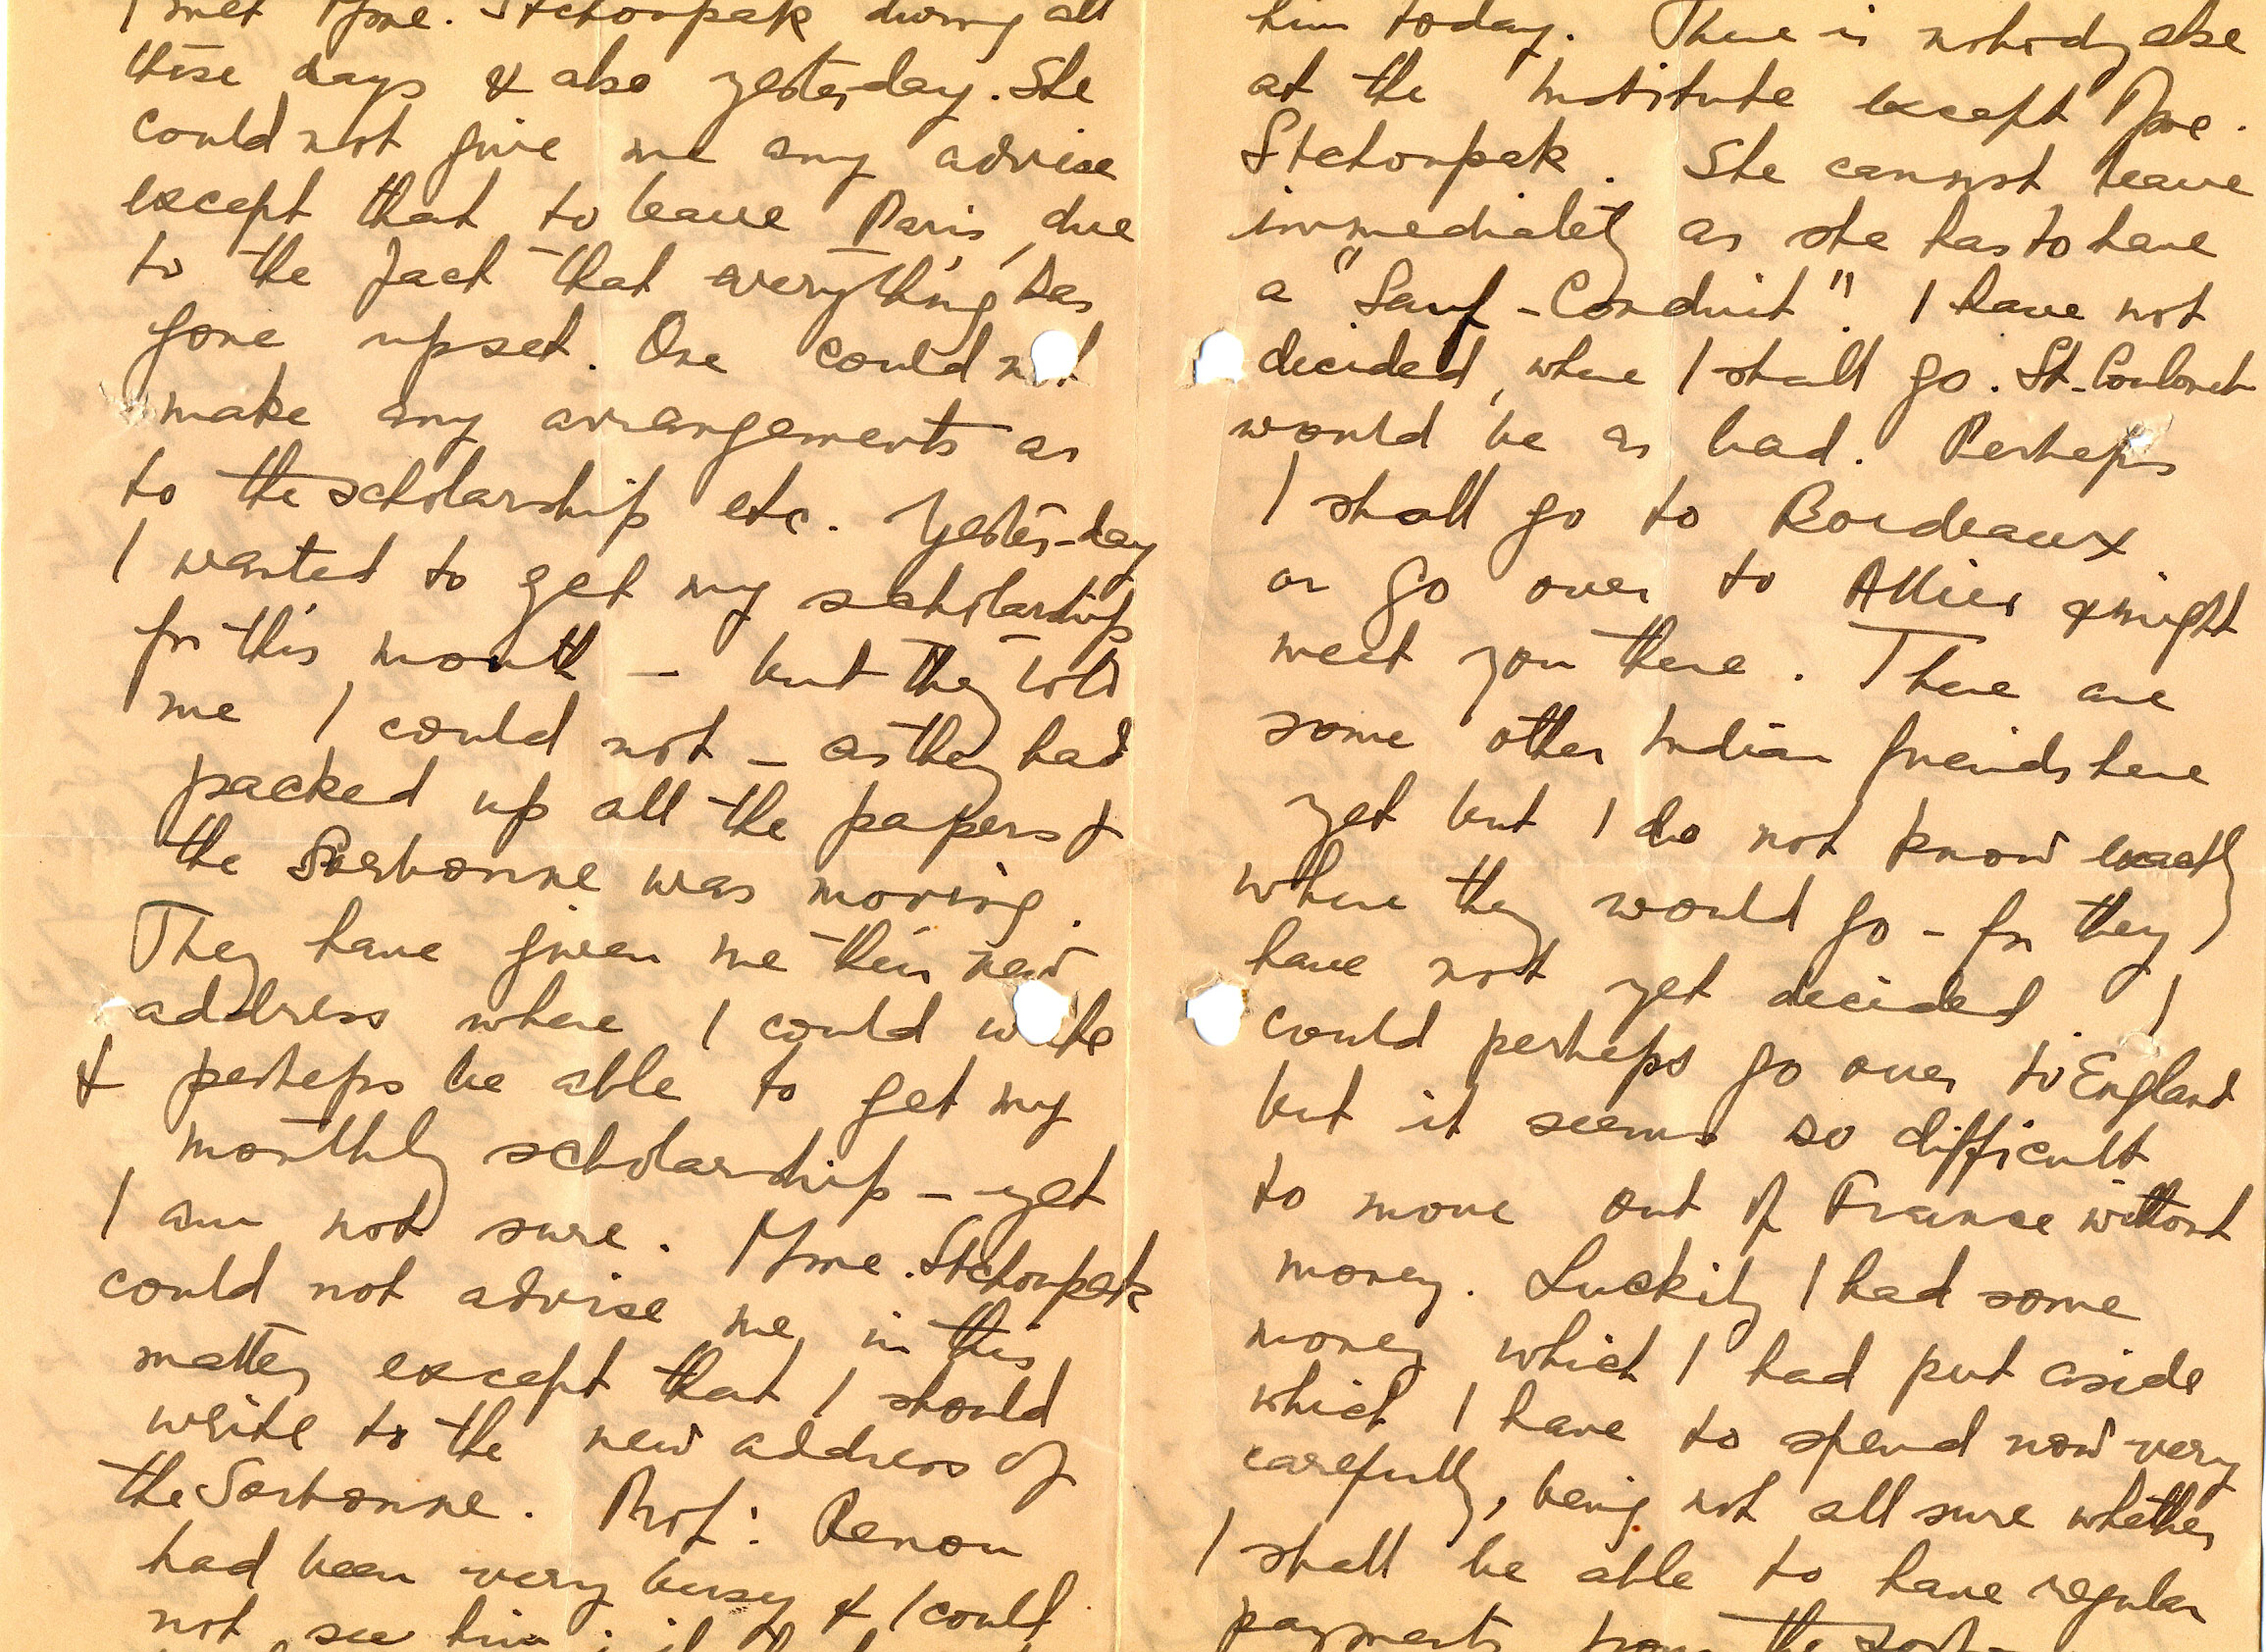 I met Mme. Stchoupak during all
these days & also yester-day. She
could not give me any advise
except that to leave Paris, due
to the fact that everything has
gone upset. One could not
make any arrangements as
to the scholarship etc. Yester-day
I wanted to get my scholarship
for this month – but they told
me I could not – as they had
packed up all the papers &
the Sorbonne was moving.
They have given me their new
address where I could write
& perhaps be able to get my
monthly scholarship – yet
I am not sure. Mme. Stchoupak
could not advise me in this
matter except that I should
write to the new address of
the Sorbonne. Prof: Renou
had been very busy & I could
not see him
him today. There is nobody else
at the Institute except Mme.
Stchoupak. She cannot leave
immediately as she has to have
a "Sauf-Conduit". I have not
decided, where I shall go. St-Coulomb
would be as bad. Perhaps
I shall go to Bordeaux
or go over to Allier & might
meet you there. There are
some other Indian friends here
yet but I do not know exactly
where they would go – for they
have not yet decided. I
could perhaps go over to England
but it seems so difficult
to move out of France without
money. Luckily I had some
money which I had put aside
which I have to spend now very
carefully, being not all sure whether
I shall be able to have regular
payments from the